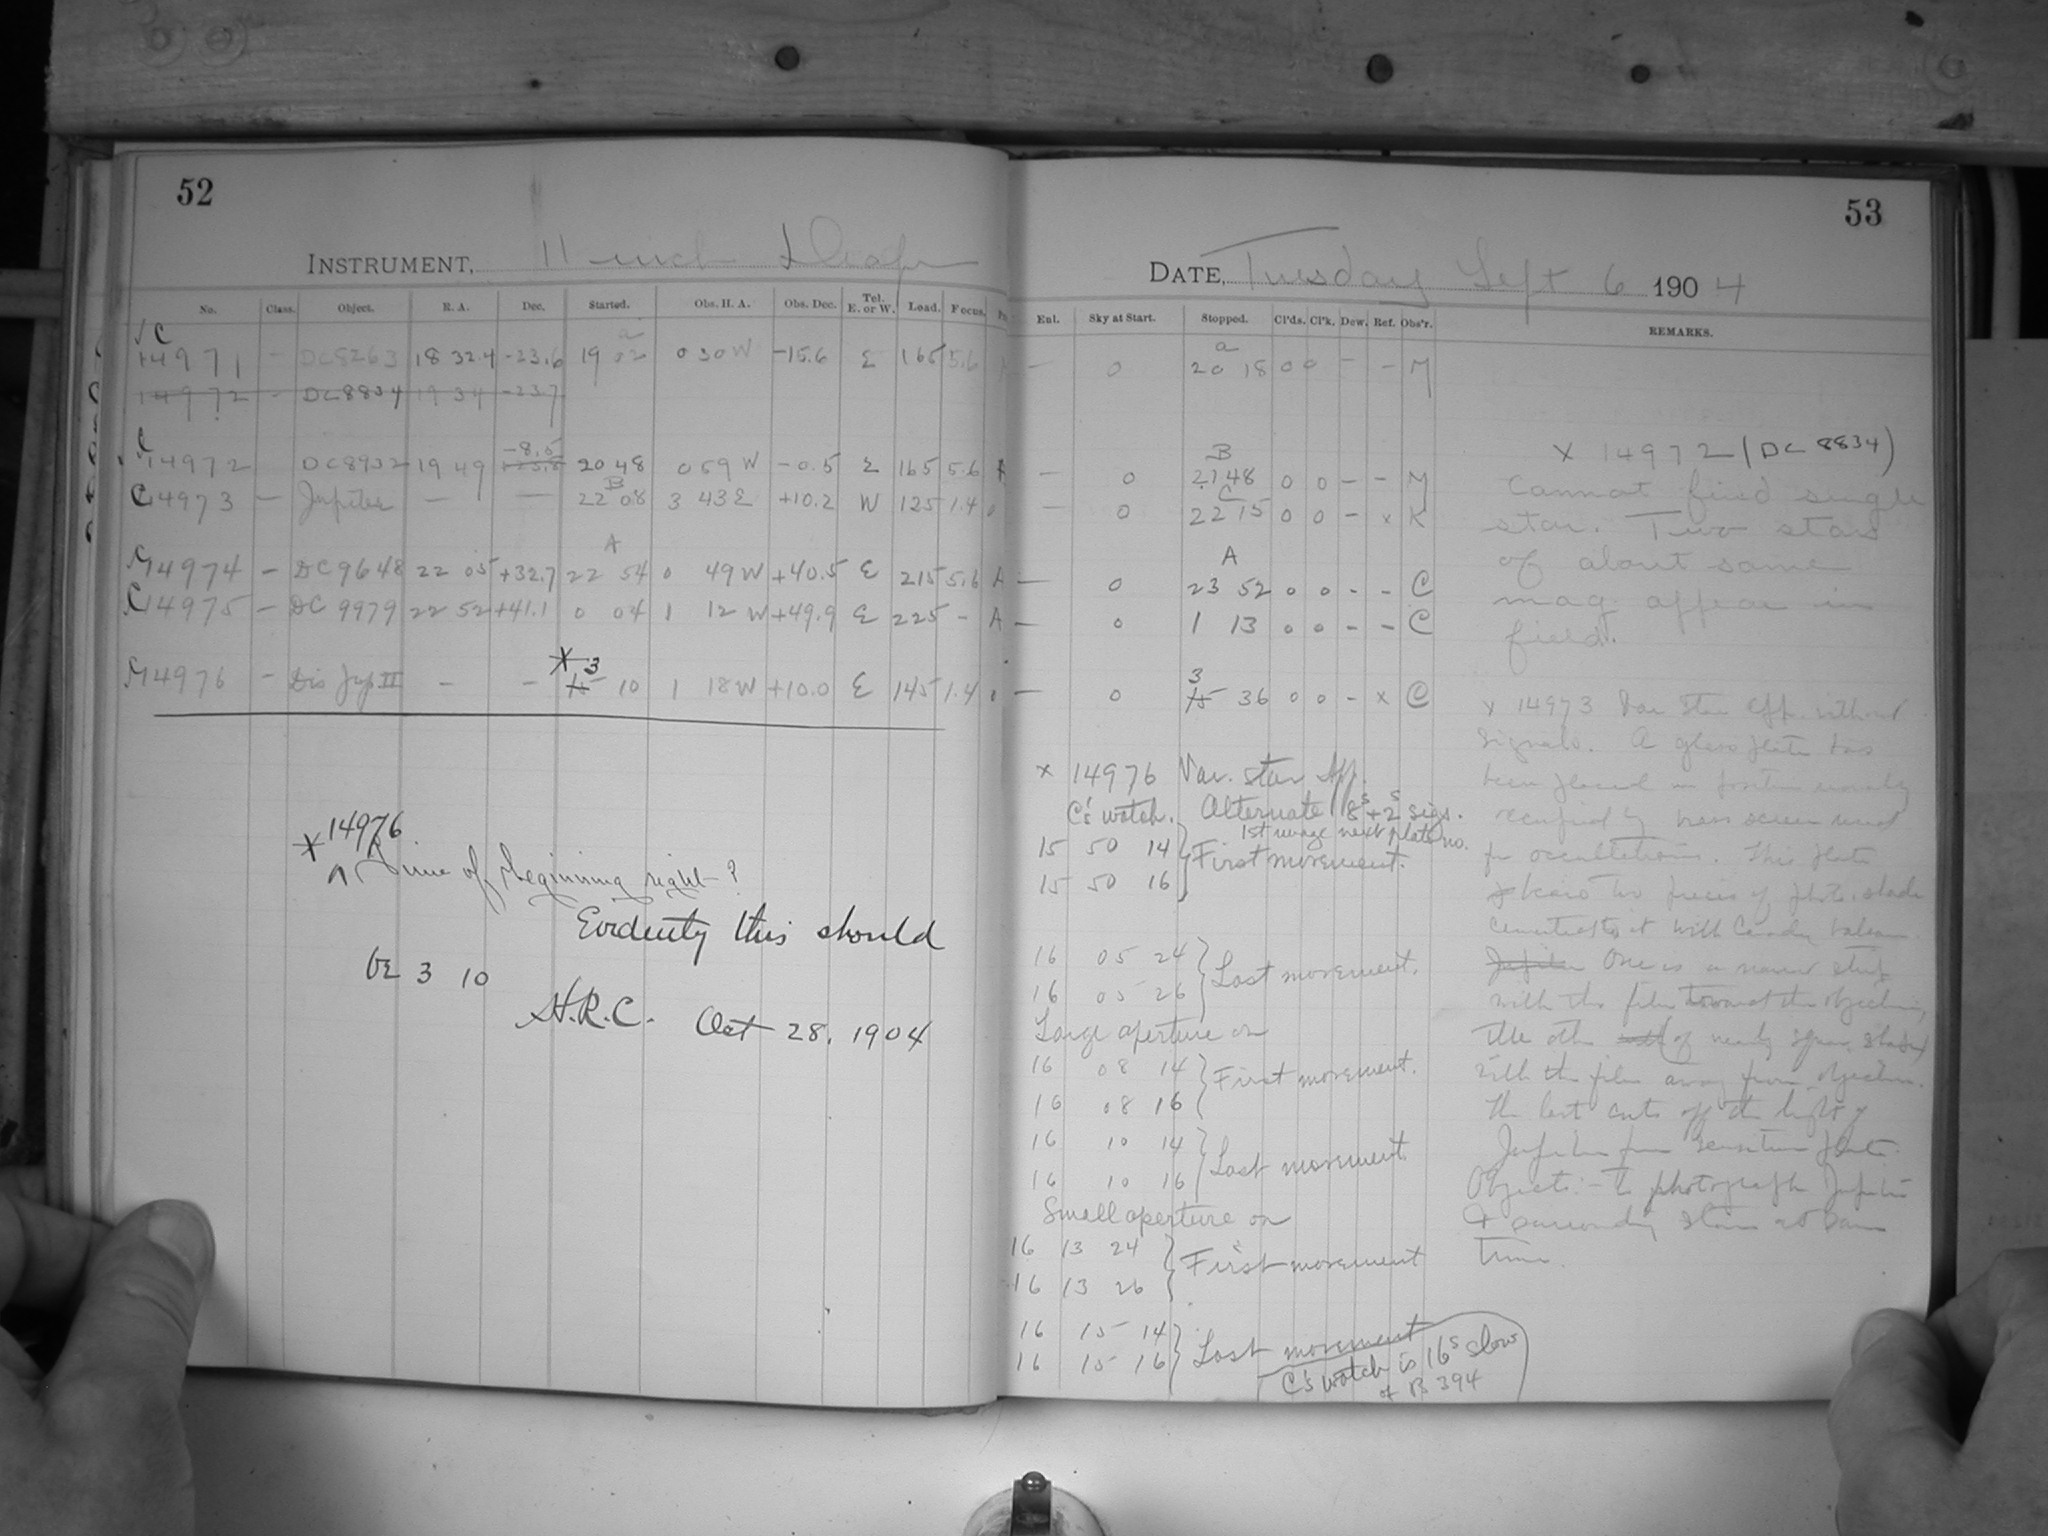 52
INSTRUMENT, 11-inch Draper
No. Class. Object. R. A. Dec. Started. Obs. H. A. Obs. Dec. Tel. E. or W. Load. Focus.
C
a
14971 - DC8263 18 32.4 -23.6 19 02 0 30 W -15.6 E 165 5.6
14972 - DC8834 19 34 -23.7
-8.5
14972 DC8932 19 49 20 48 0 59 W -0.5 E 165 5.6
B
C14973 - Jupiter - - 22 08 3 43 E +10.2 W 125 1.4 0
A
14974 - DC9648 22 05 +32.7 22 54 0 49 W +40.5 E 215 5.6 A
C14975 - DC 9979 22 52 +41.1 0 04 1 12 W +49.9 E 225 - A
X 3
14976 - Dis Jup. II - - 15 10 1 18 W +10.0 E 145 1.4 0
X 14976
Time of beginning right?
Evidently this should
be 3 10
H.R.C. Oct 28, 1904
53
DATE, Tuesday Sept 6 1904
Enl. Sky at Start. Stopped. Cl'ds. Cl'k. Dew. Ref. Obs'r. REMARKS.
a
- 0 20 18 0 0 - - M
B
- 0 21 48 0 0 - - M
C
- 0 22 15 0 0 - x K
A
- 0 23 52 0 0 - - C
- 0 1 13 0 0 - - C
3
- 0 15 36 0 0 - x C
x 14976 Var. star App.
C's watch. Alternate 8s + 2s sigs.
1st image next plate no.
15 50 14 } First movement.
15 50 16
16 05 24 } Last movement.
16 05 26
Large aperture on
16 08 14 } First movement.
16 08 16
16 10 14 } Last movement
16 10 16
Small aperture on
16 13 24 } First movement
16 13 26
16 15 14 } Last movement
16 15 16
C's watch is 16s slow
of B 394
X 14972 (DC 8834)
Cannot find single
star. Two stars
of about same
mag. appear in
field.
x 14973 Var Star App. without
signals. A glass plate has
been placed in position usually
occupied by brass screen used
for occultations. This plate
has two pieces of photo.
cemented to it with Canada balsam
Jupiter One is a narrow strip
with the film toward the objective,
the other of nearly square
with the film away from objective.
The last cuts off the light of
Jupiter from sensitive plate.
Object :- to photograph Jupiter
+ surrounding stars at same
time.